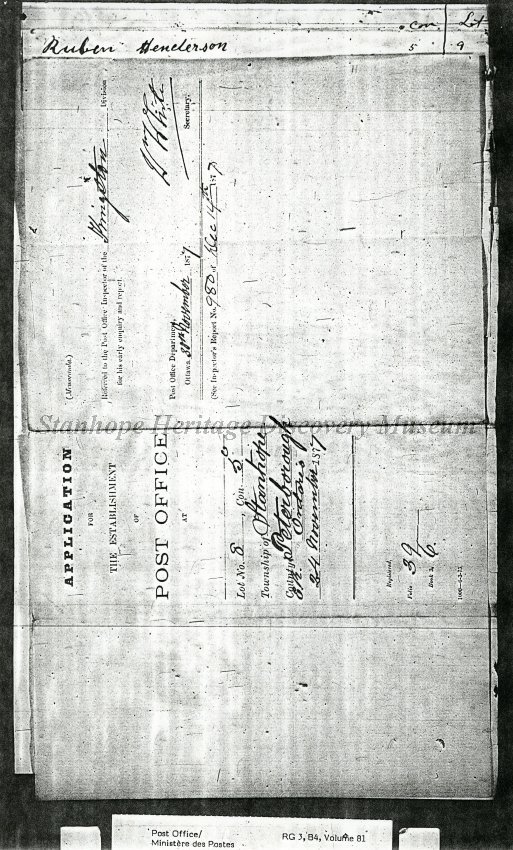 con Lot
Ruben Henderson 5 9
(Memoranda.)
Referred to the Post Office Inspector of the Kingston Division
for his early enquiry and report.
Secretary.
Post Office Department,
Ottawa, November 1877
(See Inspector's Report No. 980 of Dec 14th 1877)
Stanhope Heritage Discovery Museum
APPLICATION
FOR
THE ESTABLISHMENT
OF
POST OFFICE
AT
Lot No. 8, Con. 5
Township of Stanhope
County of Peterborough
Ontario
24 November 1877
Registered,
Folio 39
Book 6
Post Office/
Ministère des Postes
RG 3, B4, Volume 81